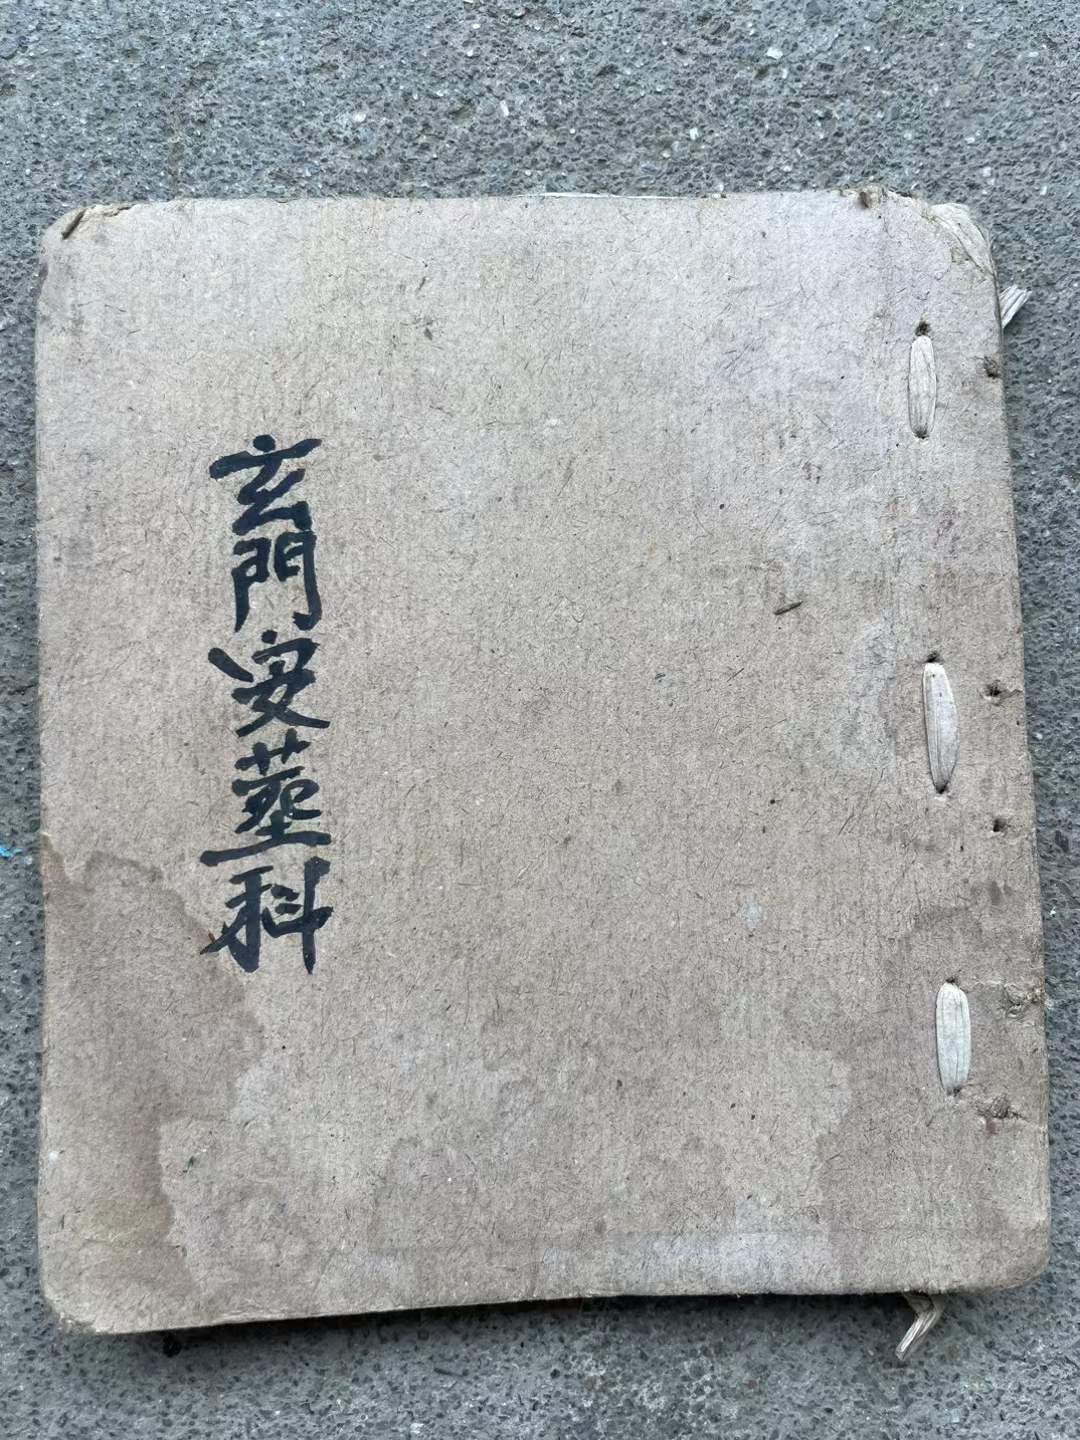 玄門安塟科